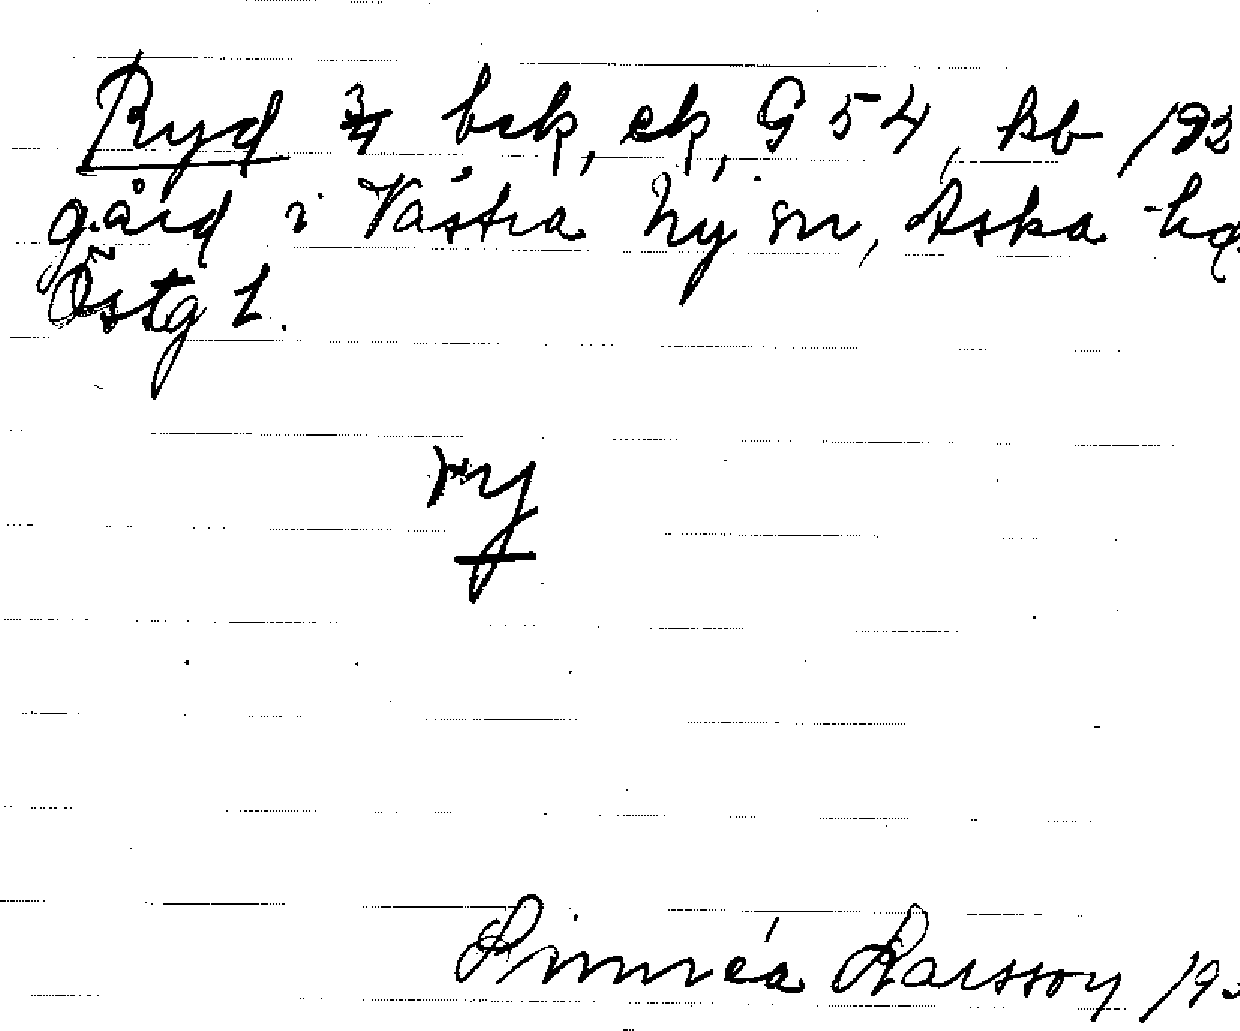 Ryd 3/4 bek, ek, G 54, kb 193
gård i Västra Ny sn, Aska hd
Östg l.
ry
Linnéa Larsson 193